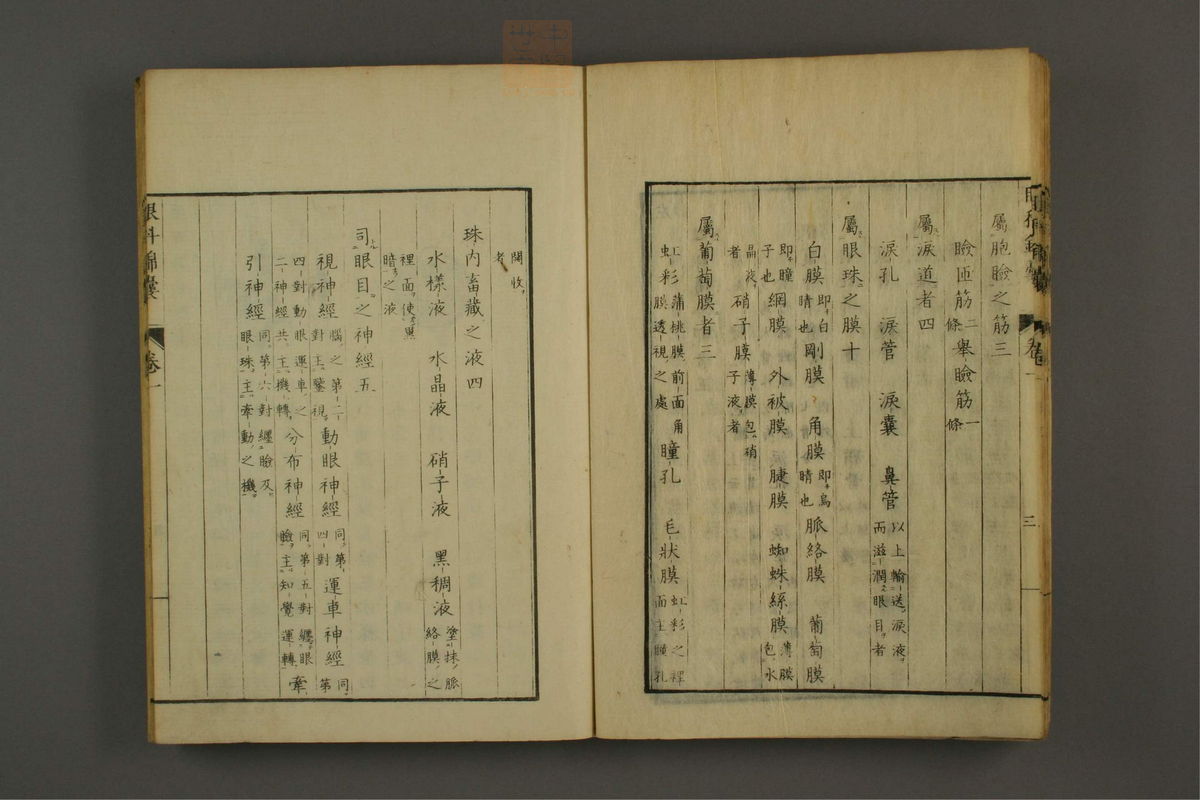 屬胞瞼之筋三
瞼匝筋二條 舉瞼筋一條
屬淚道者四
淚孔 淚管 淚囊 鼻管以上輸送淚液而滋潤眼目者
屬眼珠之膜十
白膜即白睛也 剛膜 角膜即烏睛也 脈絡膜 葡萄膜
即瞳子也 網膜 外被膜 睫膜 蜘蛛絲膜薄膜包水
晶液者 硝子膜薄膜包硝子液者
屬葡萄膜者三
虹彩葡桃膜前面角膜透視之處 瞳孔 毛狀膜虹彩之裡面主瞳孔
開收者
珠内畜藏之液四
水樣液 水晶液 硝子液 黑稠液塗抹脈絡膜之
裡面使黑暗之液
司眼目之神經五
視神經腦之第二對主鑒視 動眼神經同第四對 運車神經同第
四對動眼運車之二神經共主機轉 分布神經同第五對纏眼瞼主知覺運轉 牽
引神經同第六對纏瞼及眼珠主牽動之機
眼科錦囊 卷一
三
眼科錦囊 卷一